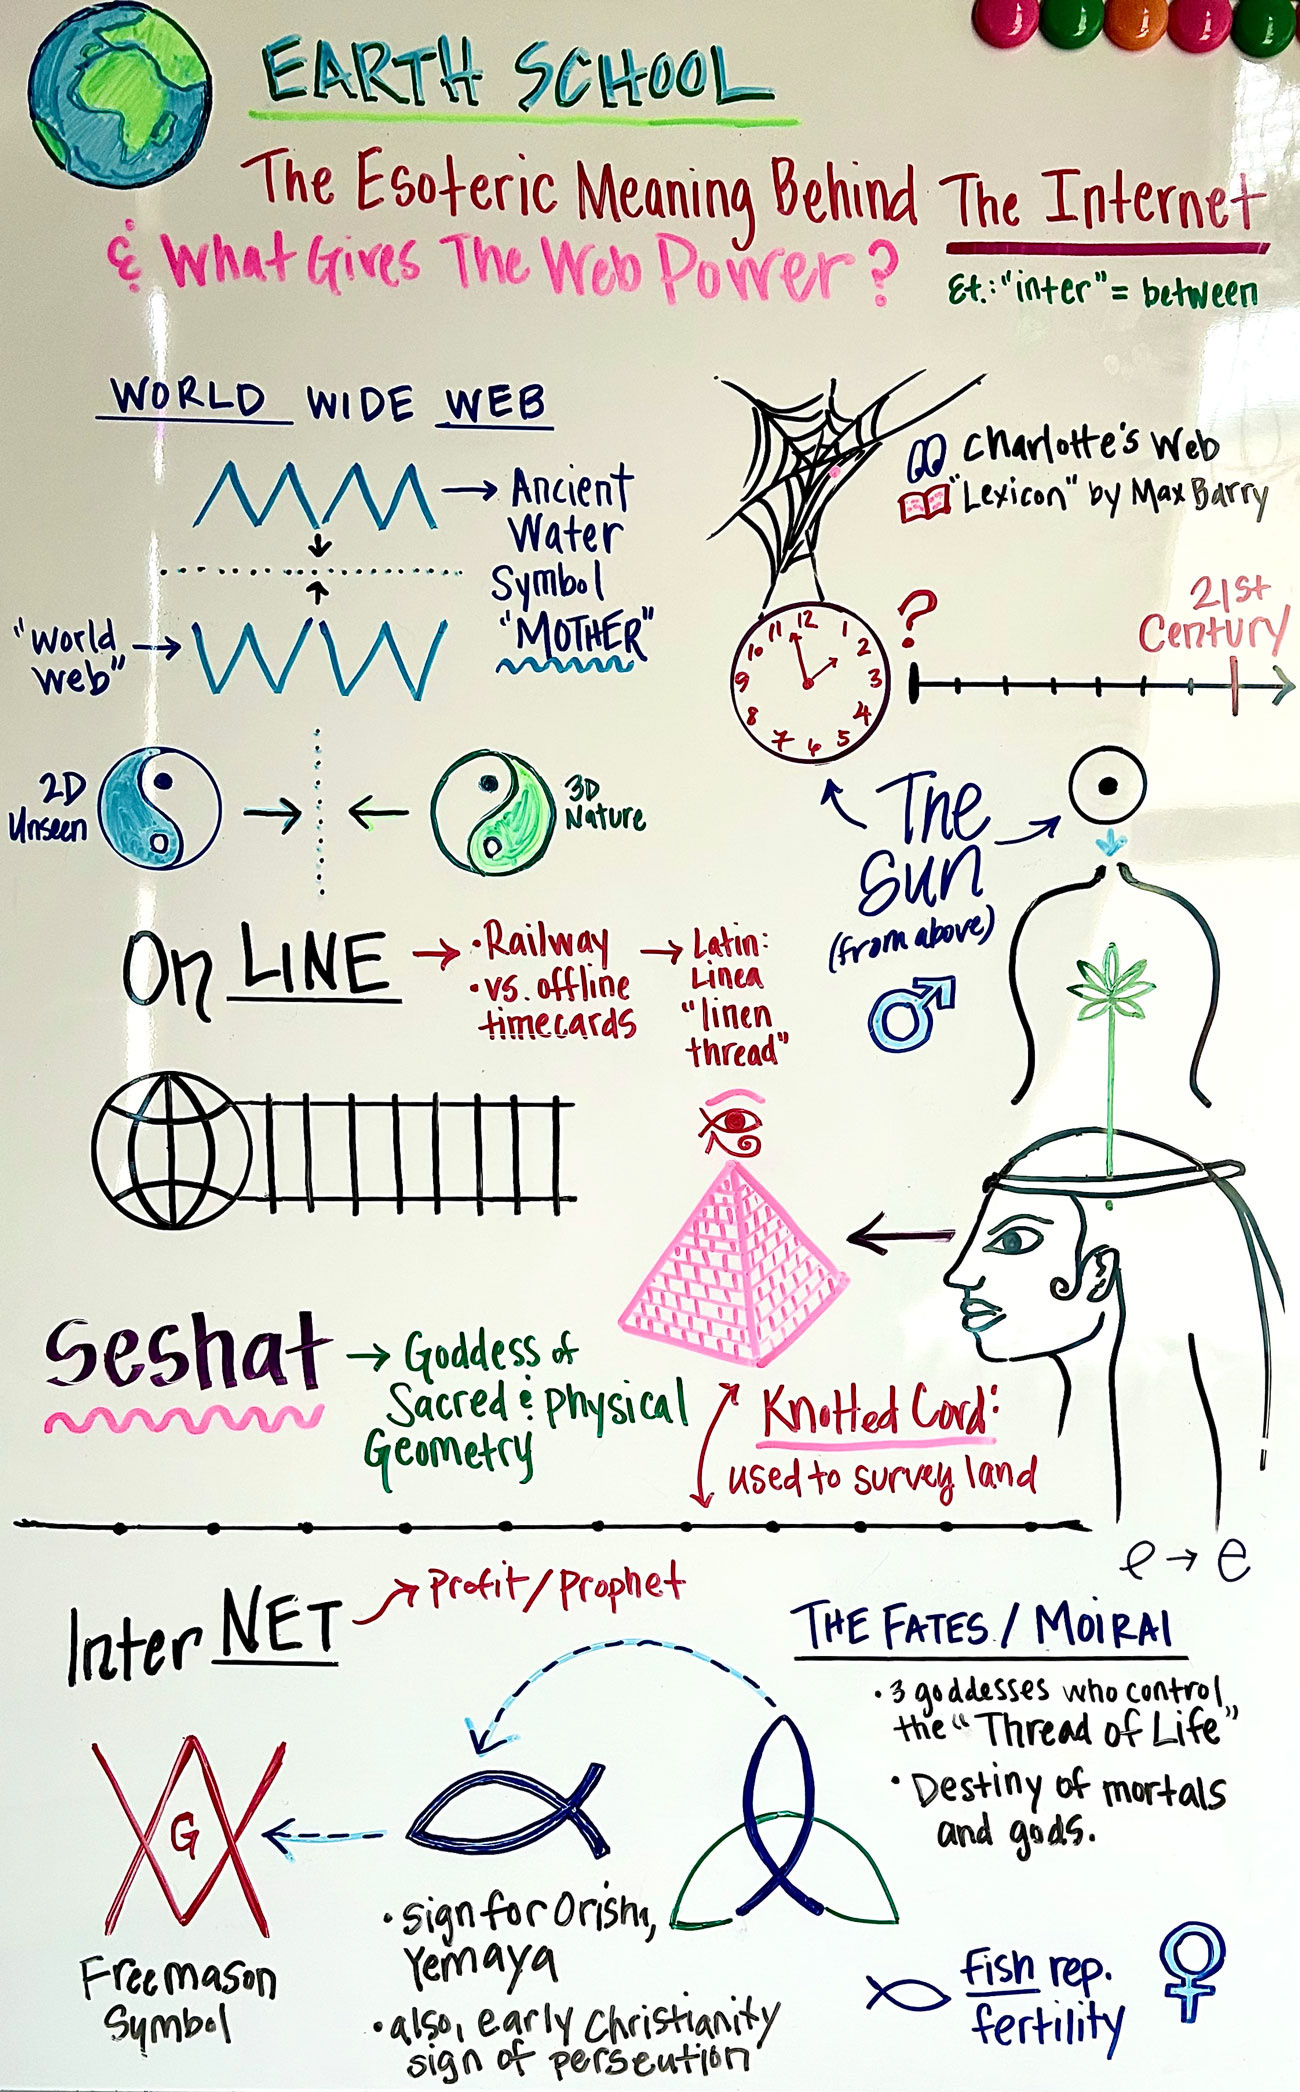 EARTH SCHOOL
The Esoteric Meaning Behind The Internet
& What Gives The Web Power?
Et.: "inter" = between
WORLD WIDE WEB
Ancient
Water
Symbol
"MOTHER"
"World
Web"
Charlotte's Web
"Lexicon" by Max Barry
?
21st
Century
12
1
2
3
4
5
6
7
8
9
10
11
2D
Unseen
3D
Nature
The
Sun
(from above)
On LINE
• Railway
• vs. offline
timecards
Latin:
Linea
"linen
thread"
Seshat
Goddess of
Sacred & Physical
Geometry
Knotted Cord:
used to survey land
e → e
Inter NET
Profit/Prophet
THE FATES / MOIRAI
• 3 goddesses who control
the "Thread of Life"
• Destiny of mortals
and gods.
G
Freemason
Symbol
• sign for Orisha,
Yemaya
• also, early Christianity
sign of perseution
Fish rep.
fertility